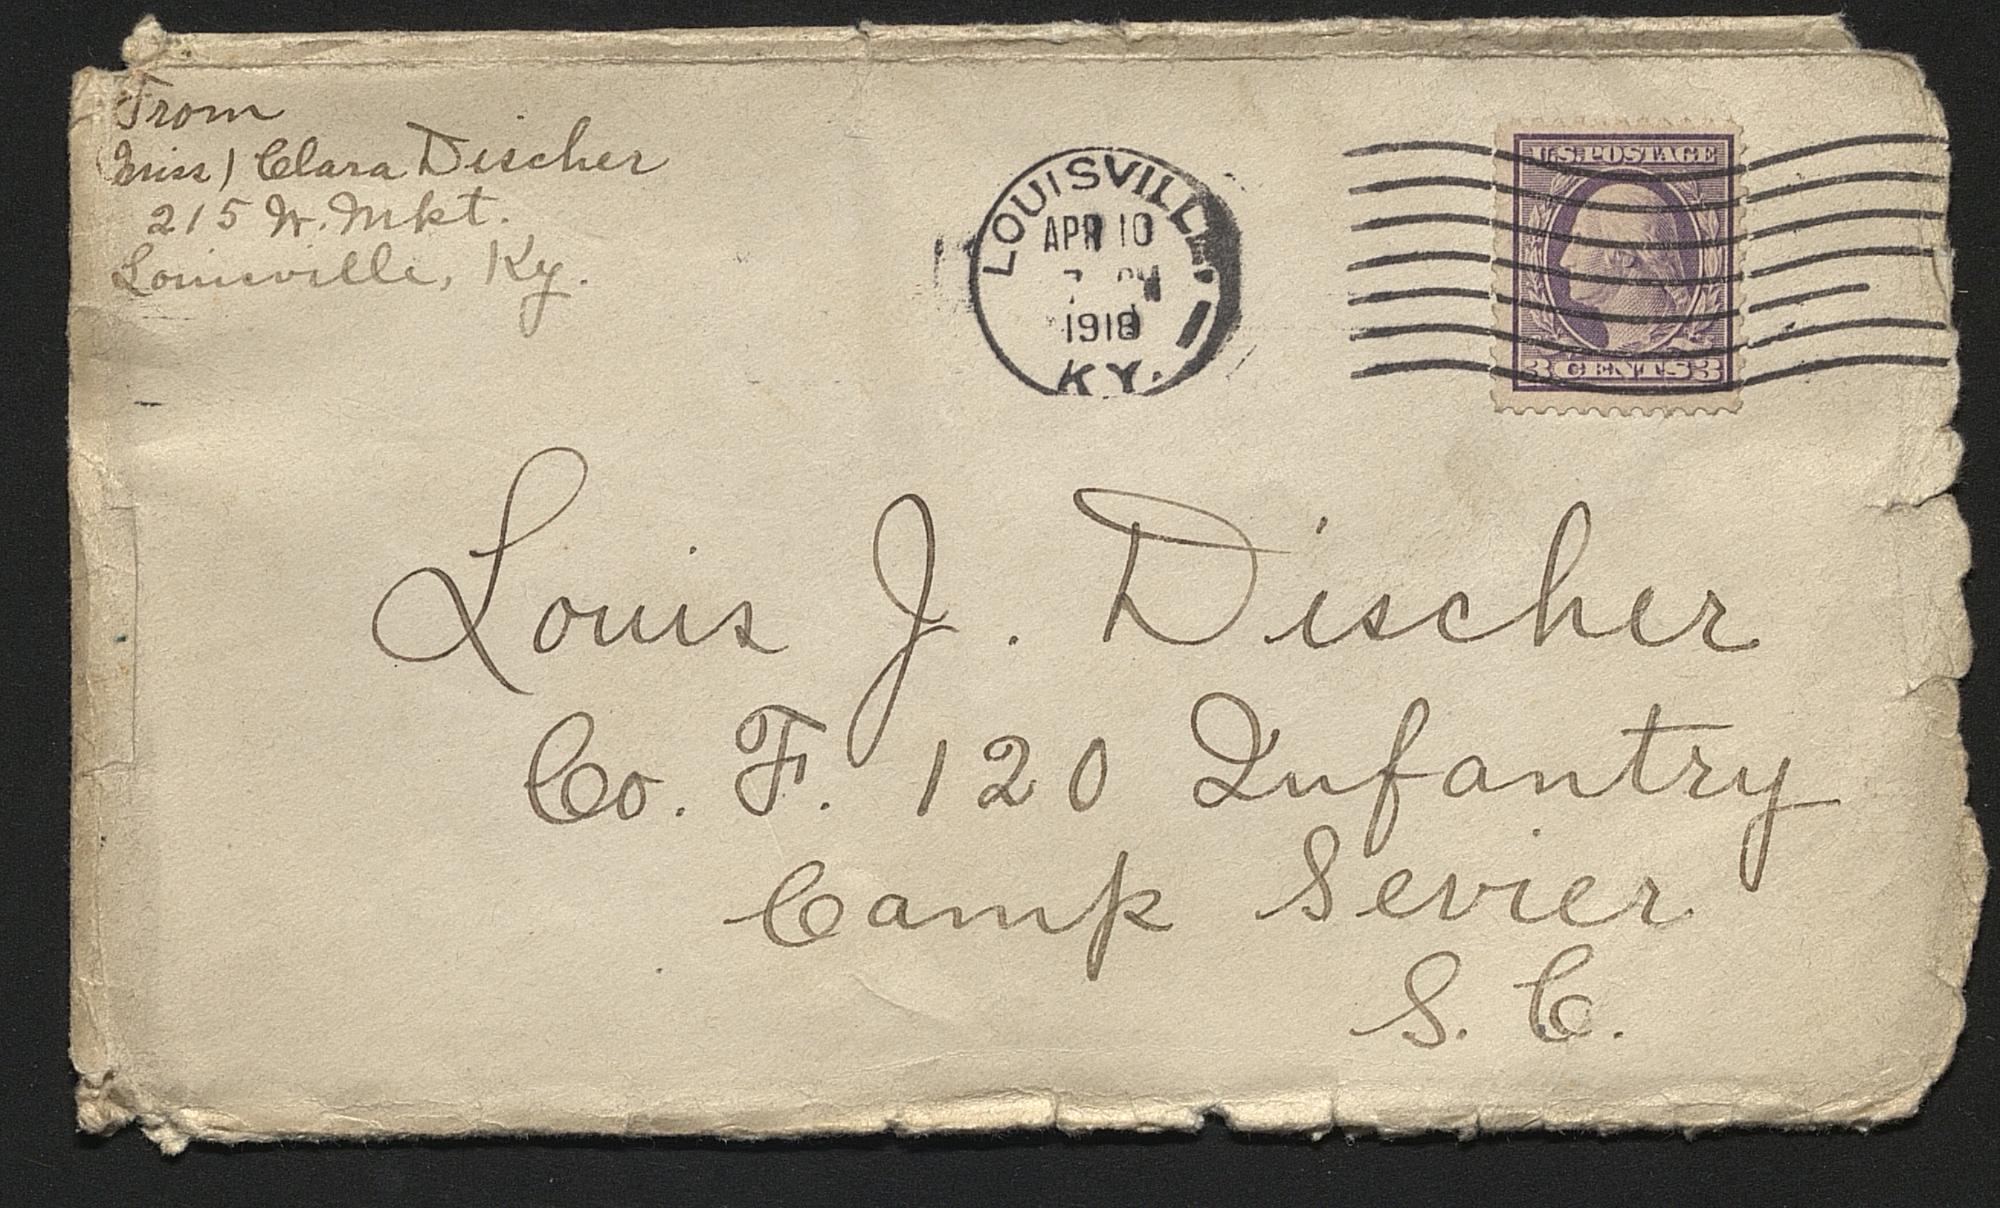 From
(Miss) Clara Discher
215 W. Mkt.
Louisville, Ky.
LOUISVILLE,
APR 10
7 PM
1918
KY.
U.S. POSTAGE
3 CENTS 3
Louis J. Discher
Co. F. 120 Infantry
Camp Sevier
S. C.